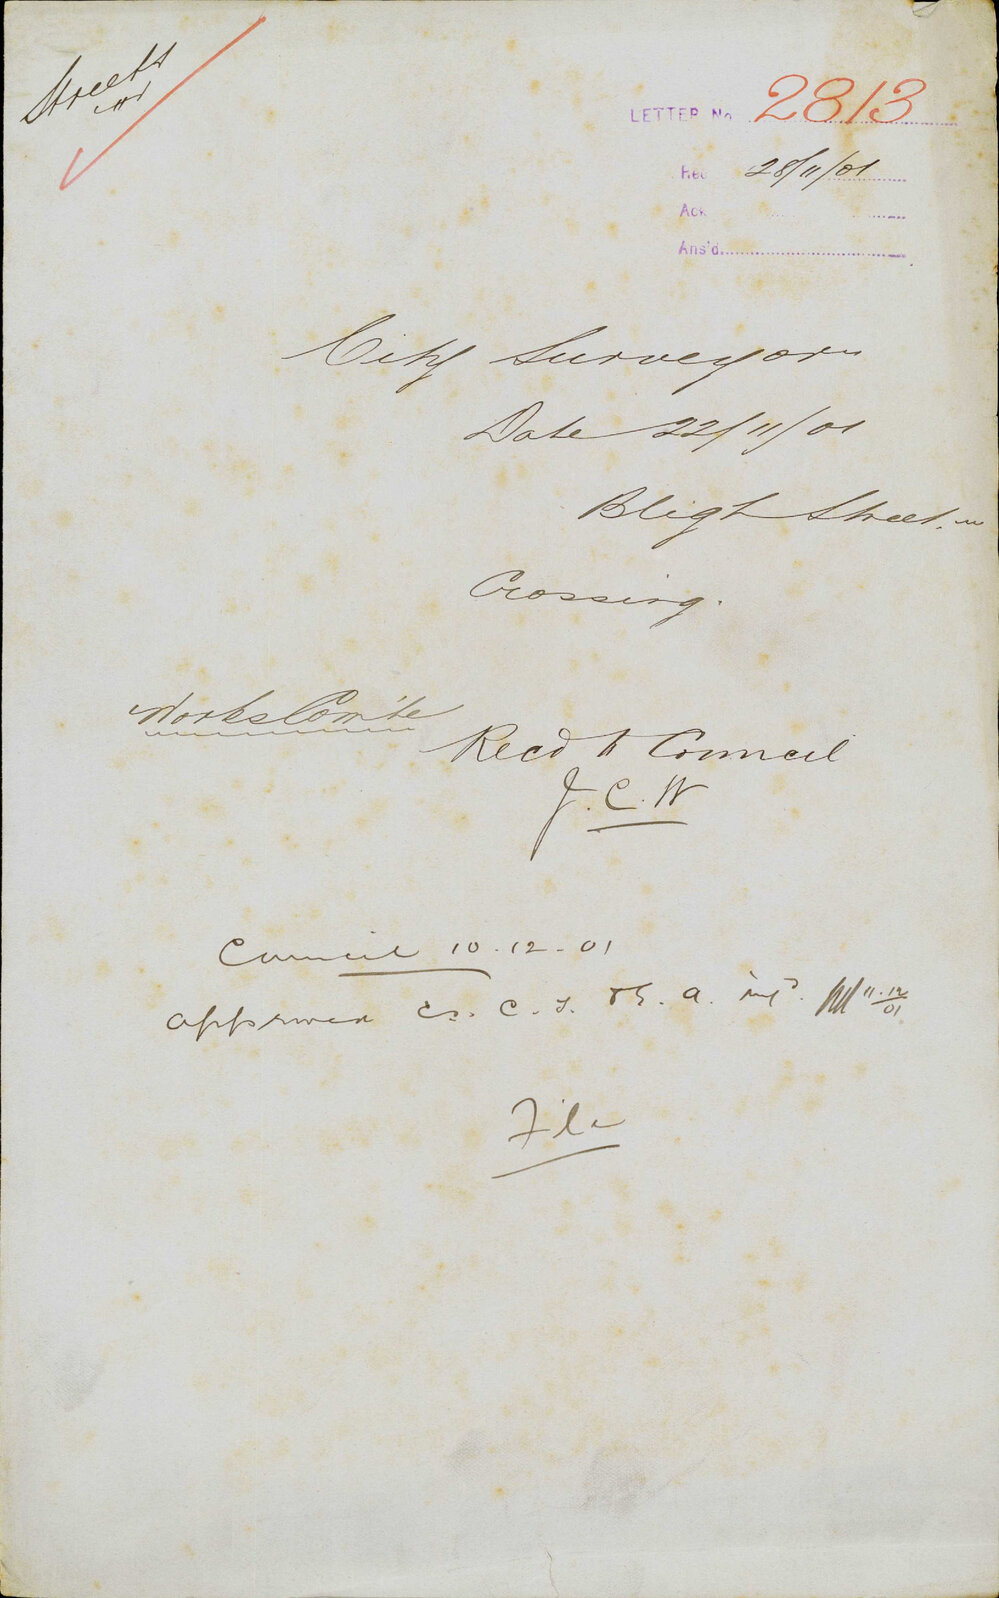 Streets
LETTER No 2813
Rec 28/11/01
Ack
Ans'd
City Surveyor
Date 22/11/01
Bligh Street
Crossing.
Works Com'te
Recd to Council
J.C.W
Council 10-12-01
approved Cs. C. S. a. 11.12/01
File